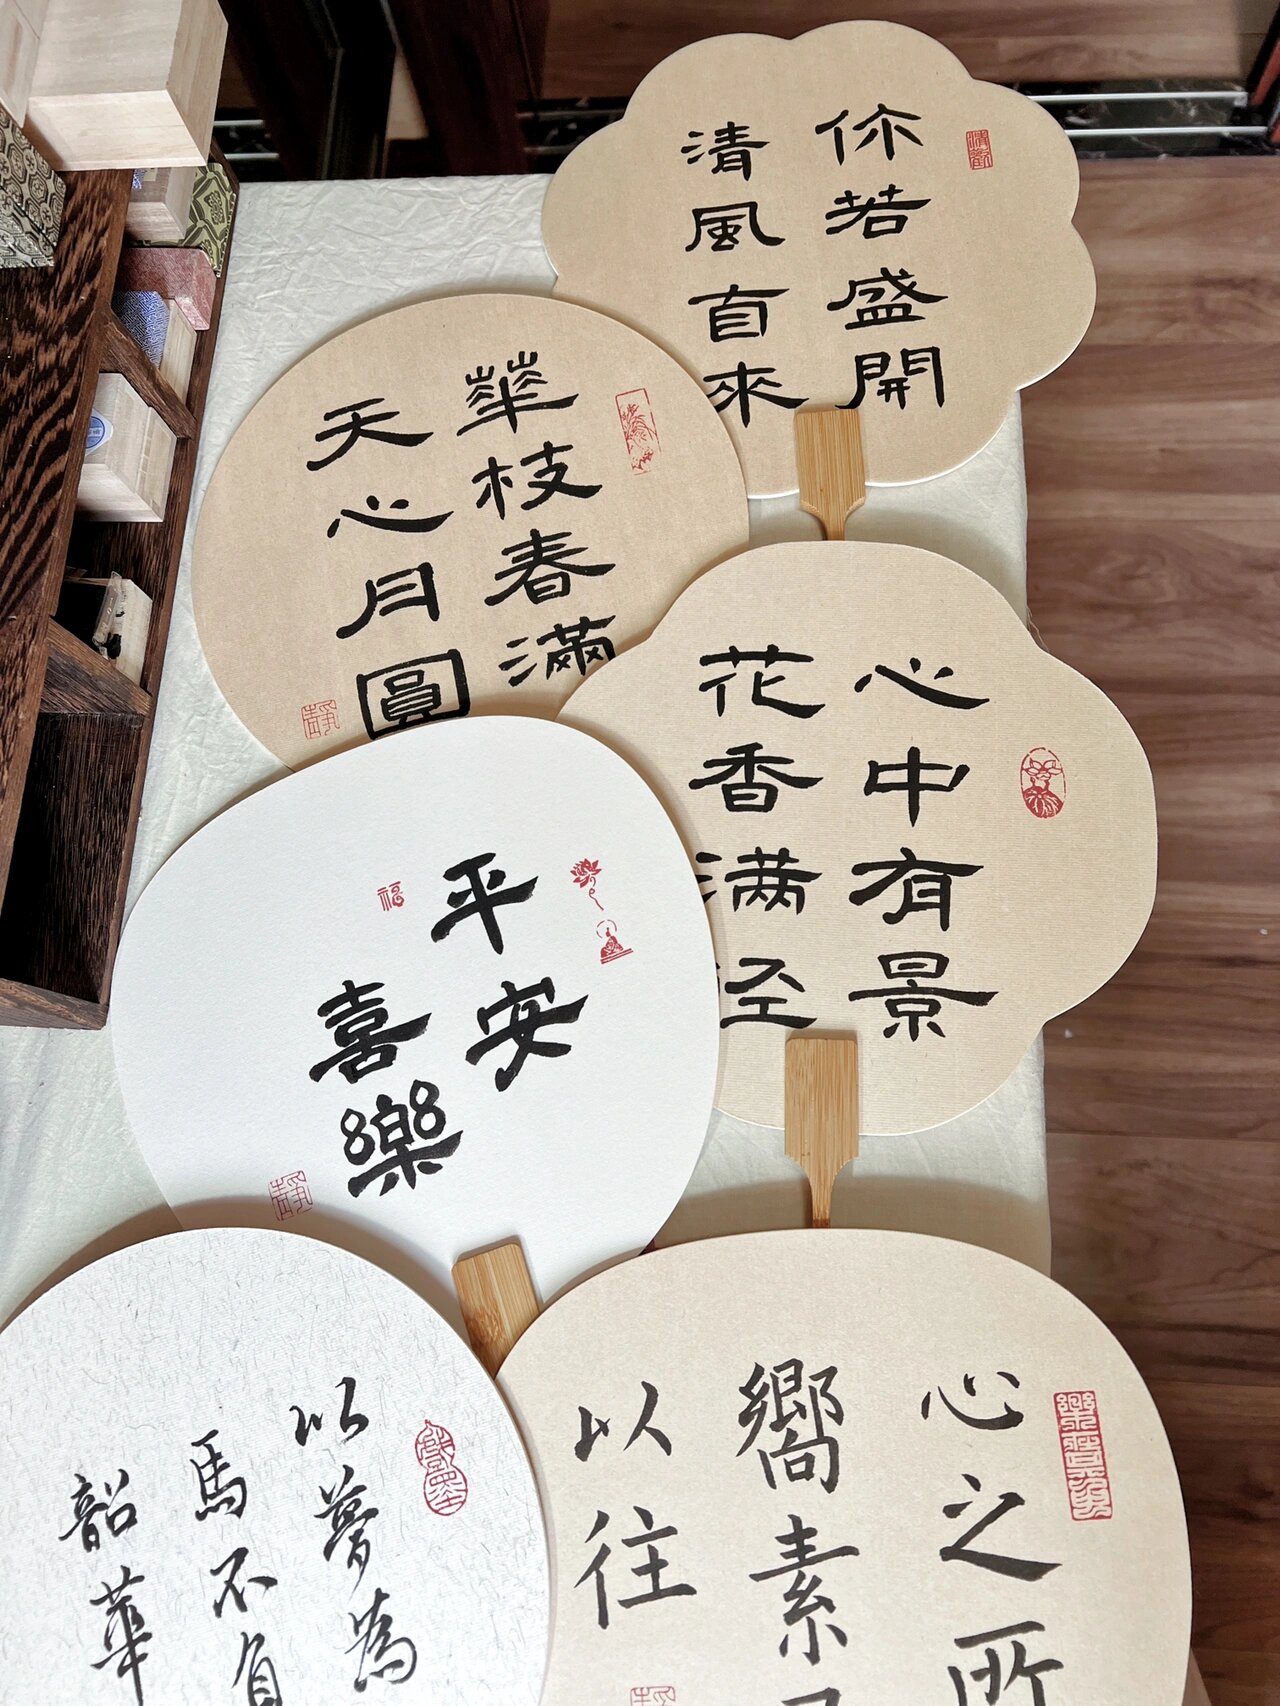 你若盛開
清風自來
清歡
華枝春滿
天心月圓
靜
心中有景
花香满径
平安
喜樂
福
靜
以夢為
馬不負
韶華
心之所
嚮素
以往